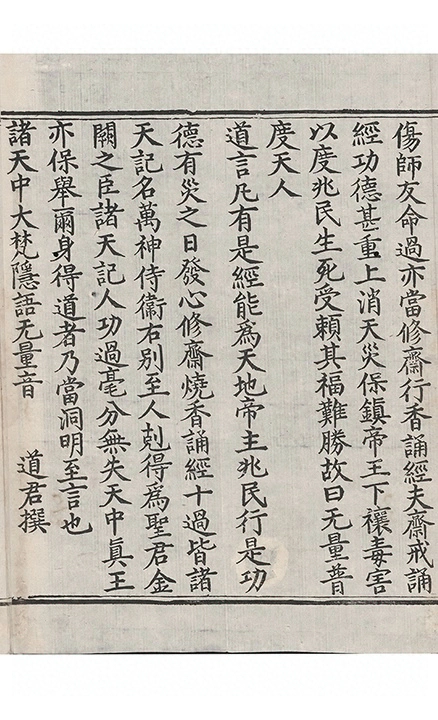 傷師友命過亦當修齋行香誦經夫齋戒誦
經功德甚重上消天災保鎮帝王下禳毒害
以度兆民生死受賴其福難勝故曰无量普
度天人
道言凡有是經能爲天地帝主兆民行是功
德有災之日發心修齋燒香誦經十過皆諸
天記名萬神侍衛右別至人剋得爲聖君金
闕之臣諸天記人功過毫分無失天中眞王
亦保舉爾身得道者乃當洞明至言也
諸天中大梵隱語无量音　道君撰